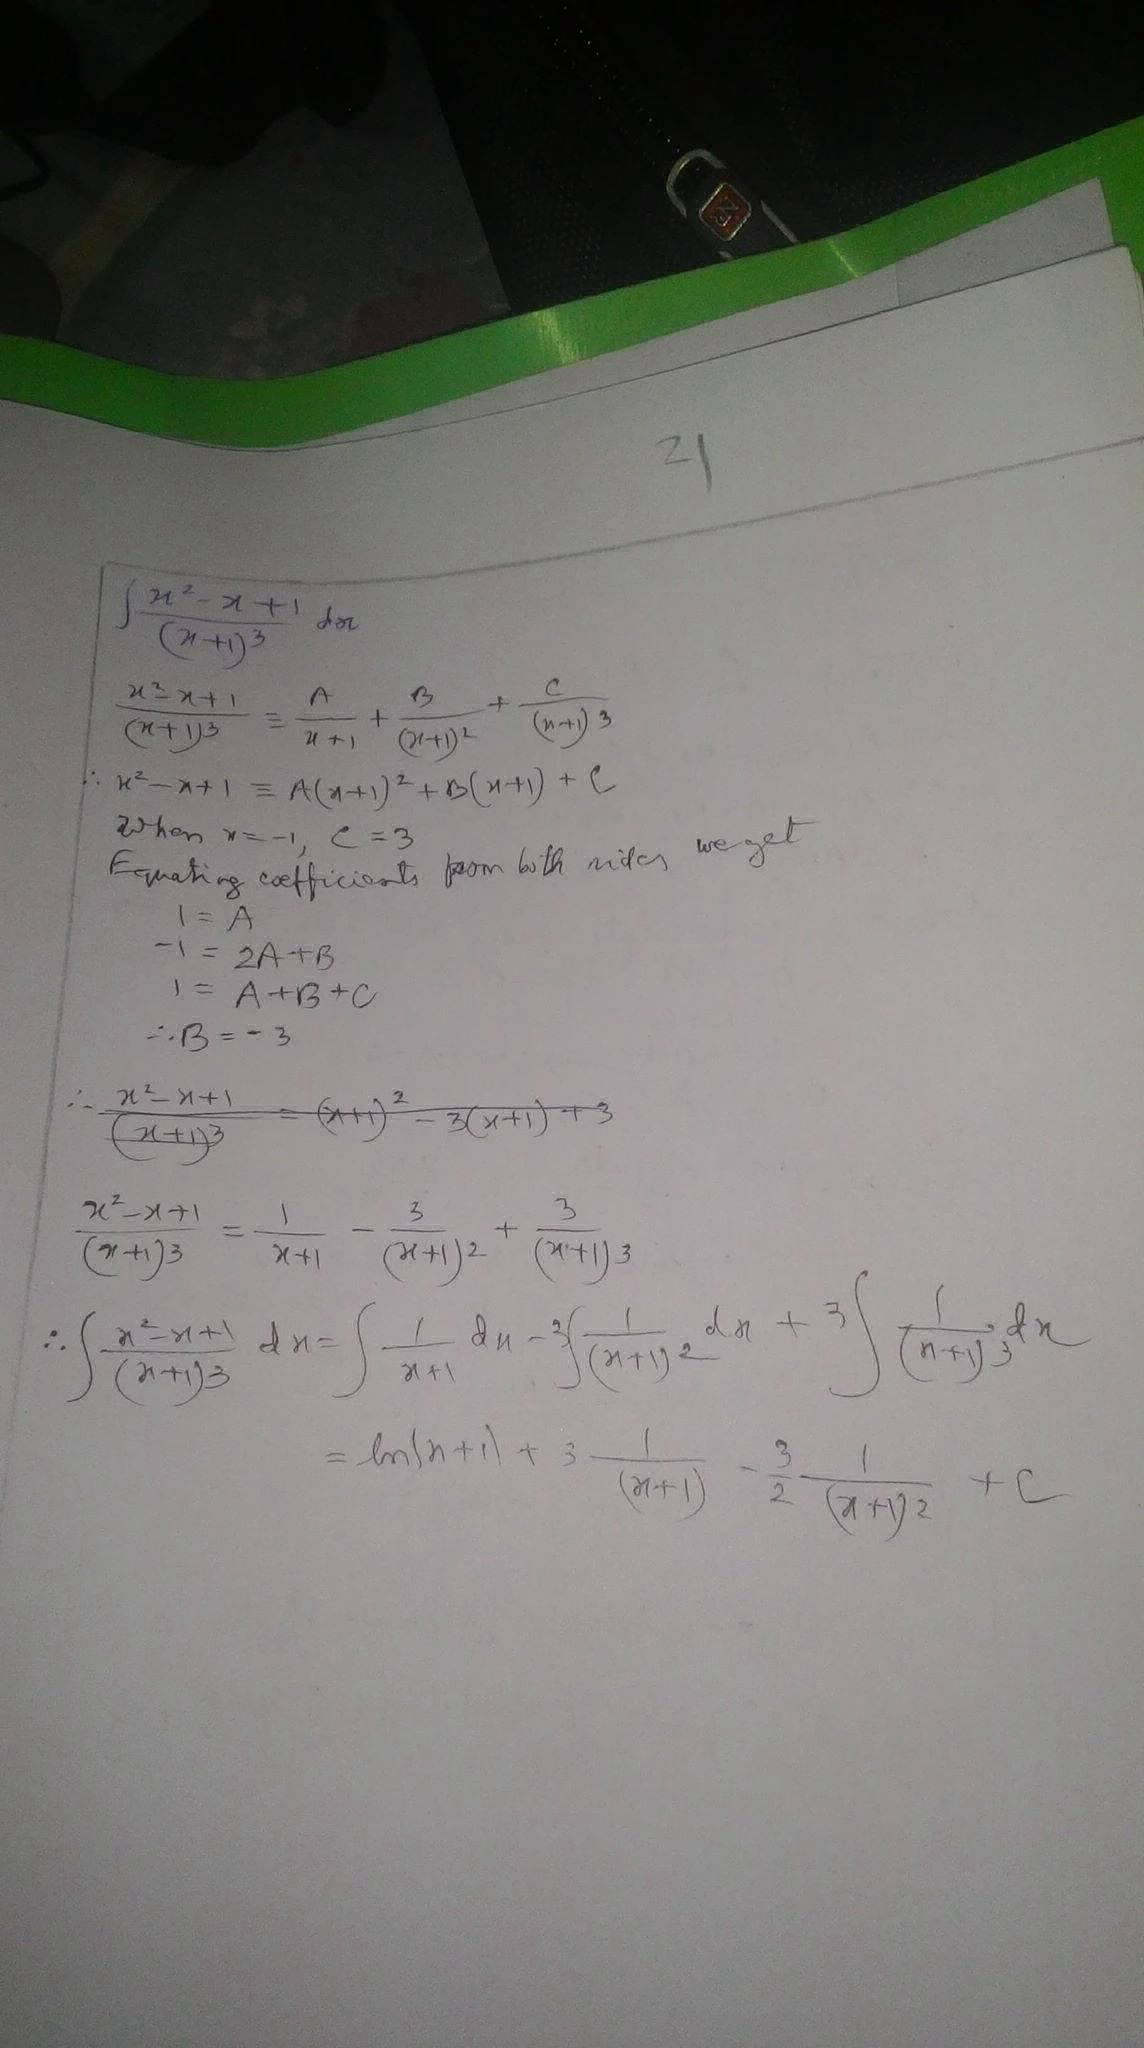 21
∫ x² - x + 1 / (x+1)³ dx
x² - x + 1 / (x+1)³ ≡ A / x+1 + B / (x+1)² + C / (x+1)³
∴ x² - x + 1 ≡ A(x+1)² + B(x+1) + C
When x = -1, C = 3
Equating coefficients from both sides we get
1 = A
-1 = 2A + B
1 = A + B + C
∴ B = -3
∴ x² - x + 1 / (x+1)³ = (x+1)² - 3(x+1) + 3
x² - x + 1 / (x+1)³ = 1 / x+1 - 3 / (x+1)² + 3 / (x+1)³
∴ ∫ x² - x + 1 / (x+1)³ dx = ∫ 1 / x+1 dx - 3∫ 1 / (x+1)² dx + 3∫ 1 / (x+1)³ dx
= ln|x+1| + 3 1 / (x+1) - 3/2 1 / (x+1)² + C